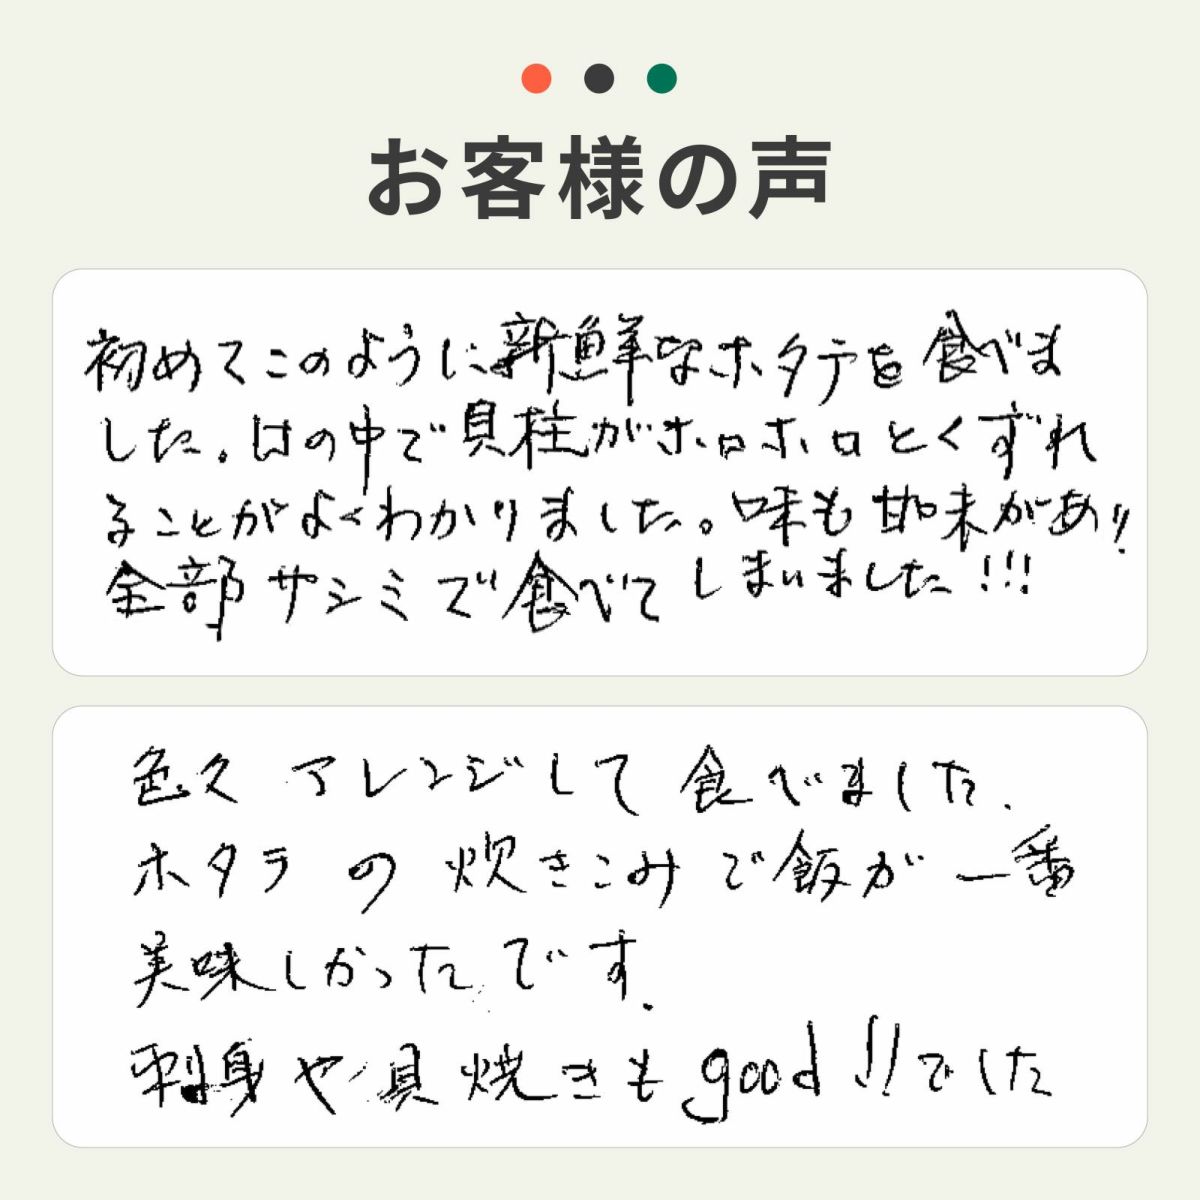 お客様の声
初めてこのように新鮮なホタテを食べま
した。口の中で貝柱がホロホロとくずれ
ることがよくわかりました。味も甘味があり!
全部サシミで食べてしまいました!!!
色々アレンジして食べました.
ホタテの炊きこみご飯が一番
美味しかったです.
刺身や貝焼きもgood!!でした